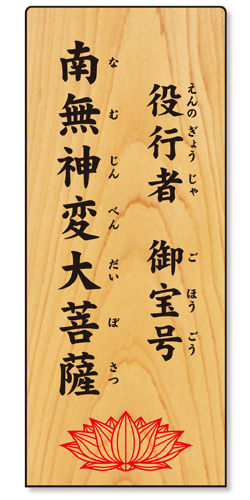 役行者 御宝号
えんの ぎょう じゃ ご ほう ごう
南無神変大菩薩
な む じん べん だい ぼ さつ